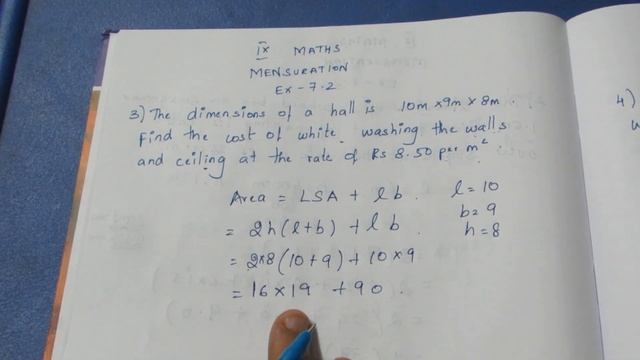 IX MATHS
MENSURATION
Ex - 7.2
3) The dimensions of a hall is 10m × 9m × 8m.
Find the cost of white washing the walls
and ceiling at the rate of Rs 8.50 per m²
Area = LSA + lb. l = 10
= 2h(l+b) + lb. b = 9
= 2×8(10+9) + 10×9 h = 8
= 16×19 + 90.
4)